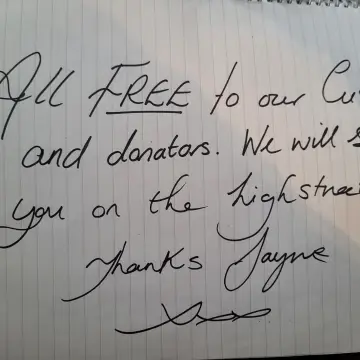 All FREE to our Cu
and donators. We will s
you on the highstree
Thanks Jayne
xxx